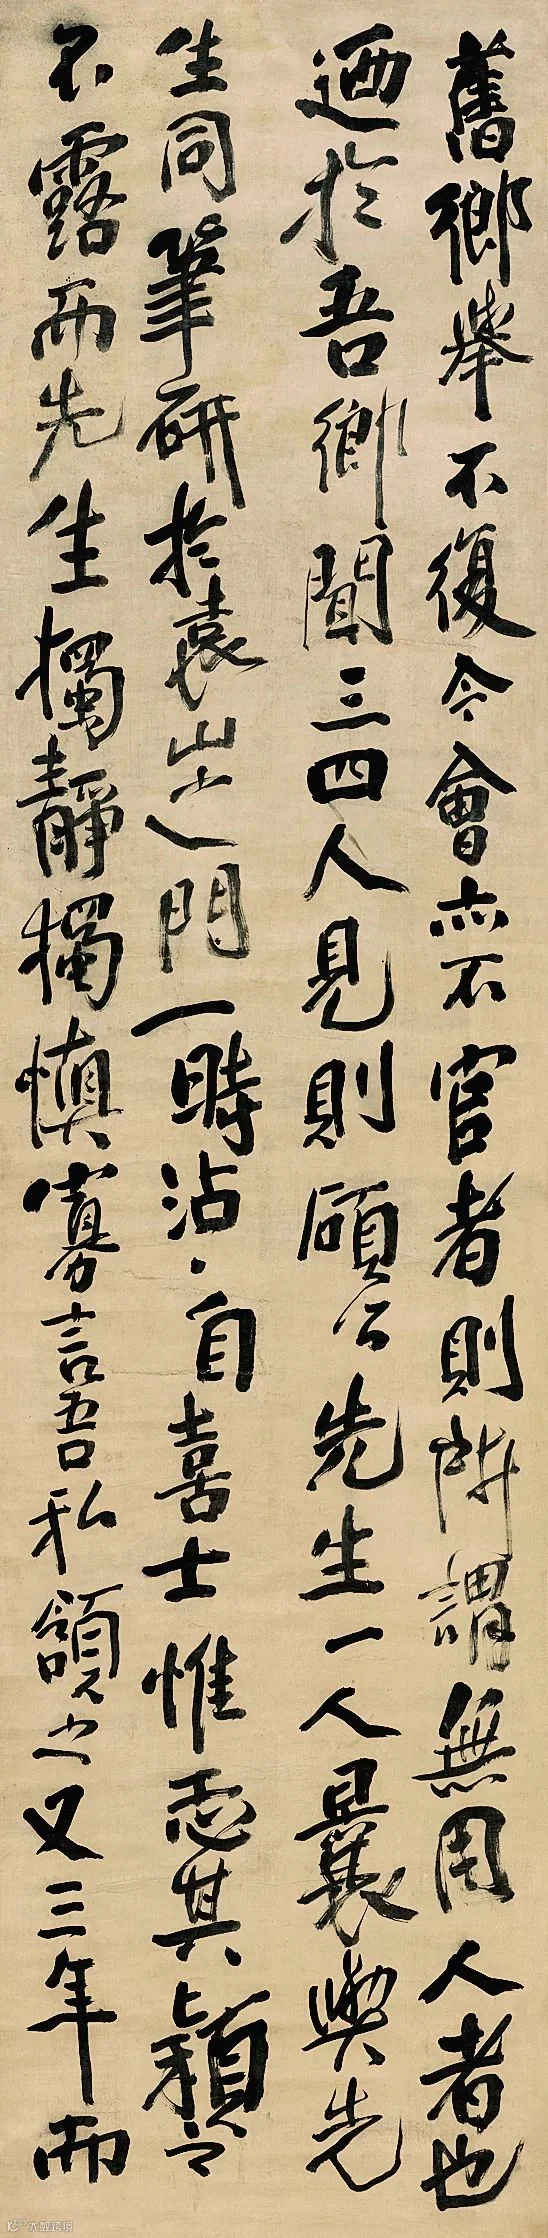 舊鄉舉不復令會亦不官者則所謂無用人者也
迺於吾鄉聞三四人見則碩公先生一人曩與先
生同筆研於袁山之門一時沾沾自喜士惟恐其穎之
不露而先生獨靜獨慎寡言吾私頷之又三年而
大数跨境